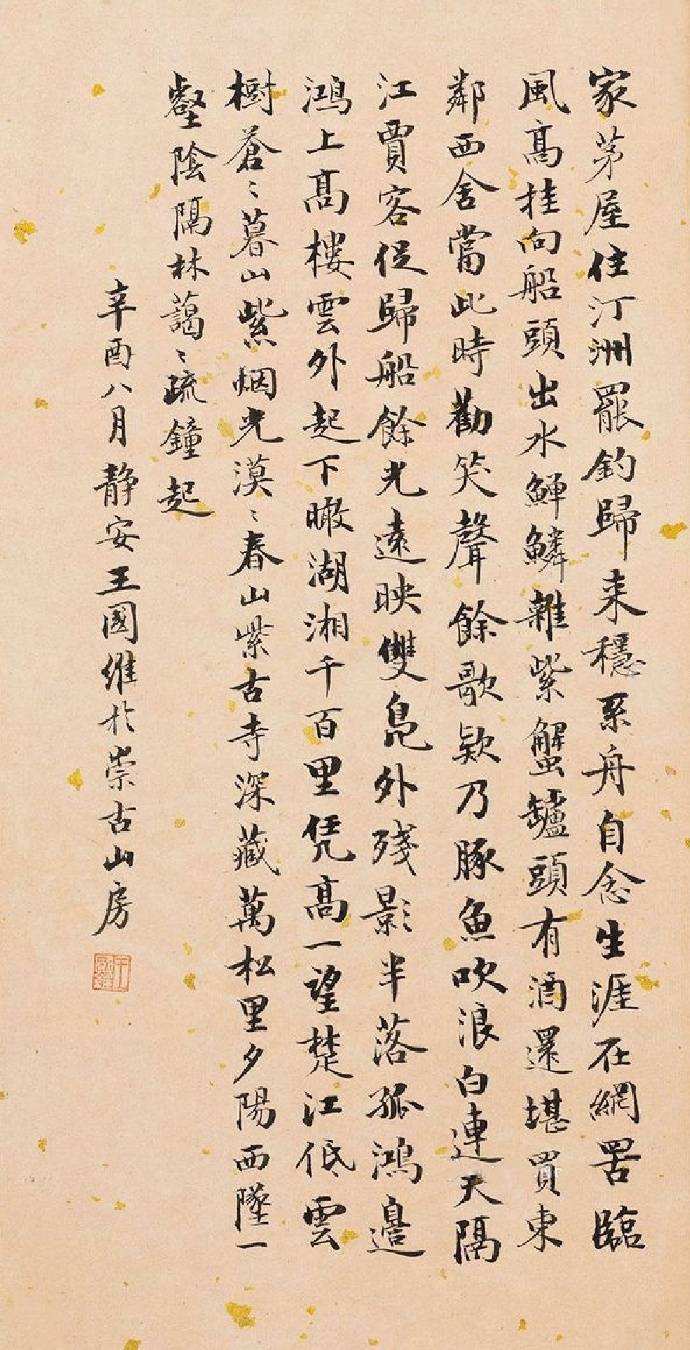 家茅屋住汀洲罷釣歸来穩系舟自念生涯在網罟臨
風高挂向船頭出水鮮鱗雜紫蟹罏頭有酒還堪買東
鄰西舍當此時勸笑聲餘歌欵乃豚魚吹浪白連天隔
江賈客促歸船餘光遠映雙鳧外殘影半落孤鴻邉
鴻上髙樓雲外起下瞰湖湘千百里凭髙一望楚江低雲
樹蒼〻暮山紫烟光漠〻春山紫古寺深藏萬松里夕陽西墜一
壑陰隔林藹〻疏鐘起
辛酉八月靜安王國維於崇古山房